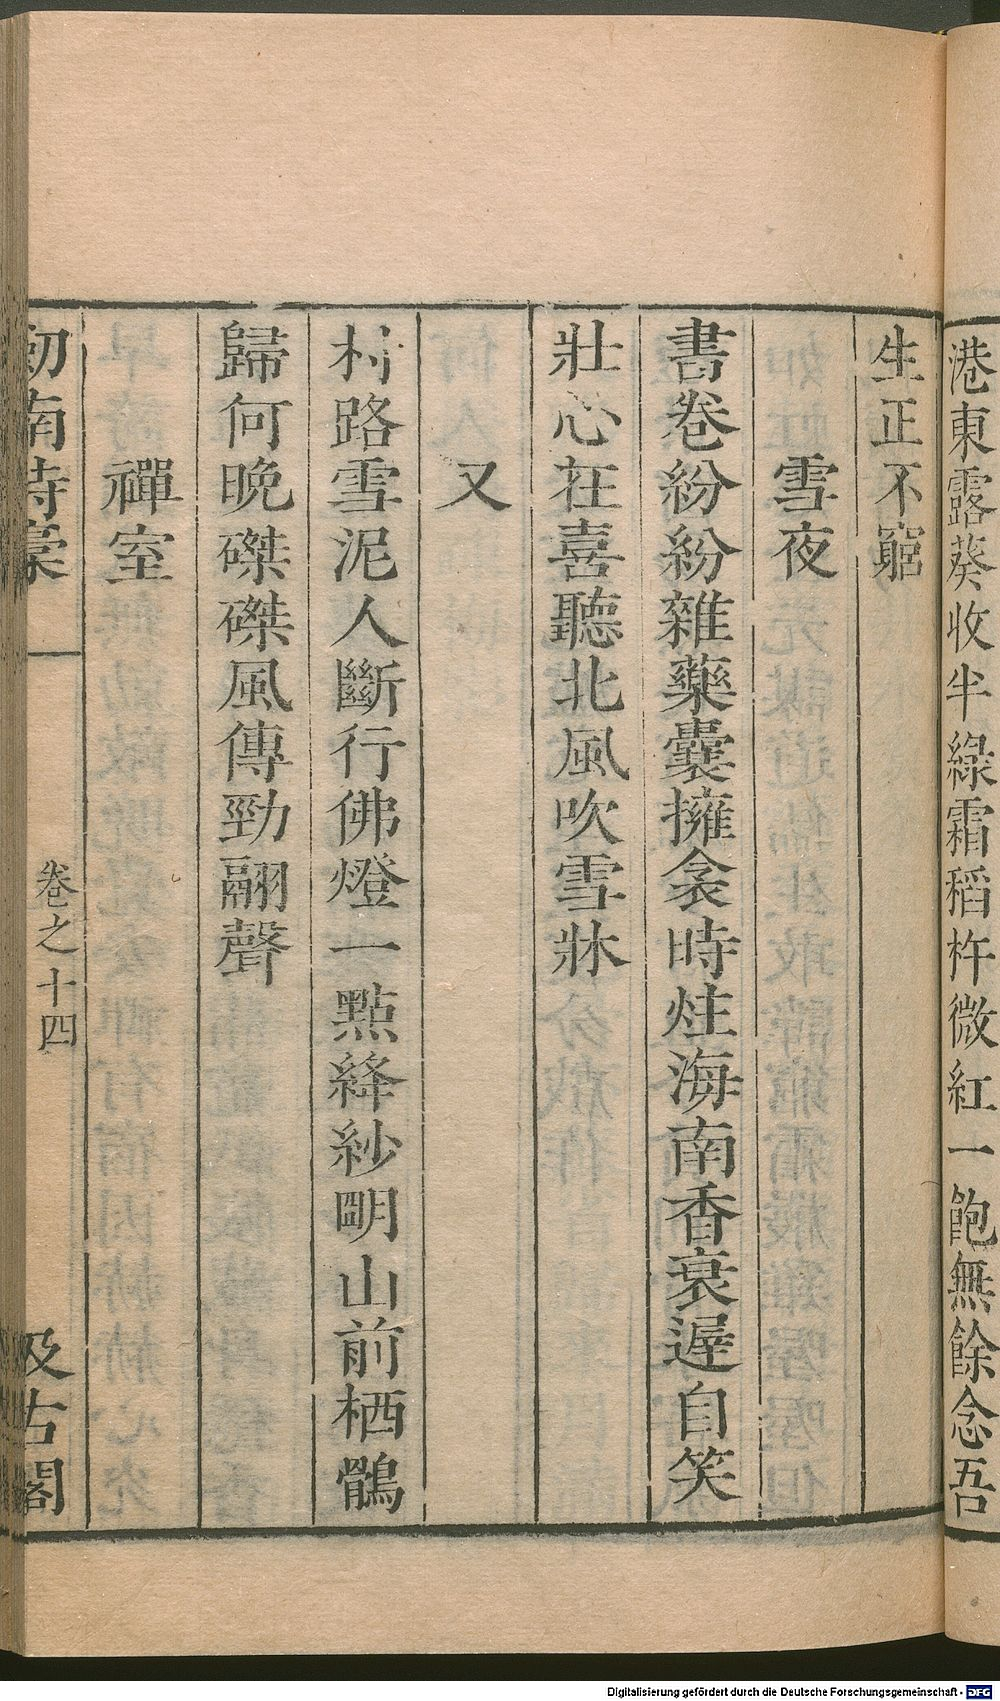 港東露葵收半綠霜稻杵微紅一飽無餘念吾
生正不窮
雪夜
書卷紛紛雜藥囊擁衾時炷海南香衰遲自笑
壯心在喜聽北風吹雪牀
又
村路雪泥人斷行佛燈一點絳紗明山前栖鶻
歸何晚磔磔風傳勁翮聲
禪室
劒南詩稾
卷之十四
汲古閣
Digitalisierung gefördert durch die Deutsche Forschungsgemeinschaft - DFG